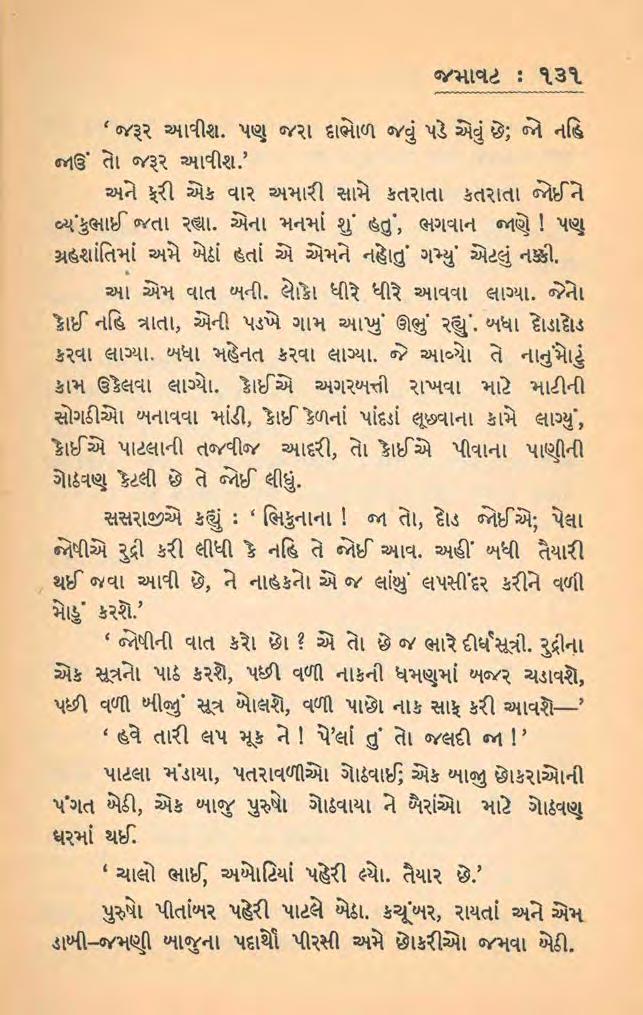 જમાવટ : ૧૩૧
‘ જરૂર આવીશ. પણ જરા દાભોળ જવું પડે એવું છે; જો નહિ
જાઉં તો જરૂર આવીશ.’
અને ફરી એક વાર અમારી સામે કતરાતા કતરાતા જોઈને
વ્યંકુભાઈ જતા રહ્યા. એના મનમાં શું હતું, ભગવાન જાણે ! પણ
ગ્રહશાંતિમાં અમે બેઠાં હતાં એ એમને નહોતું ગમ્યું એટલું નક્કી.
આ એમ વાત બની. લોકો ધીરે ધીરે આવવા લાગ્યા. જેનો
કોઈ નહિ ત્રાતા, એની પડખે ગામ આખું ઊભું રહ્યું. બધા દોડાદોડ
કરવા લાગ્યા. બધા મહેનત કરવા લાગ્યા. જે આવ્યો તે નાનુંમોટું
કામ ઉકેલવા લાગ્યો. કોઈએ અગરબત્તી રાખવા માટે માટીની
સોગઠીઓ બનાવવા માંડી, કોઈ કેળનાં પાંદડાં લૂછવાના કામે લાગ્યું,
કોઈએ પાટલાની તજવીજ આદરી, તો કોઈએ પીવાના પાણીની
ગોઠવણ કેટલી છે તે જોઈ લીધું.
સસરાજીએ કહ્યું : ‘ ભિકુનાના ! જા તો, દોડ જોઈએ; પેલા
જોષીએ રુદ્રી કરી લીધી કે નહિ તે જોઈ આવ. અહીં બધી તૈયારી
થઈ જવા આવી છે, ને નાહકનો એ જ લાંબું લપસીંદર કરીને વળી
મોડું કરશે.’
‘ જોષીની વાત કરો છો ? એ તો છે જ ભારે દીર્ઘસૂત્રી. રુદ્રીના
એક સૂત્રનો પાઠ કરશે, પછી વળી નાકની ધમણમાં બજર ચડાવશે,
પછી વળી બીજું સૂત્ર બોલશે, વળી પાછો નાક સાફ કરી આવશે—’
‘ હવે તારી લપ મૂક ને ! પે’લાં તું તો જલદી જા !’
પાટલા મંડાયા, પતરાવળીઓ ગોઠવાઈ; એક બાજુ છોકરાઓની
પંગત બેઠી, એક બાજુ પુરુષો ગોઠવાયા ને બૈરાંઓ માટે ગોઠવણ
ઘરમાં થઈ.
‘ ચાલો ભાઈ, અબોટિયાં પહેરી લ્યો. તૈયાર છે.’
પુરુષો પીતાંબર પહેરી પાટલે બેઠા. કચૂંબર, રાયતાં અને એમ
ડાબી–જમણી બાજુના પદાર્થો પીરસી અમે છોકરીઓ જમવા બેઠી.